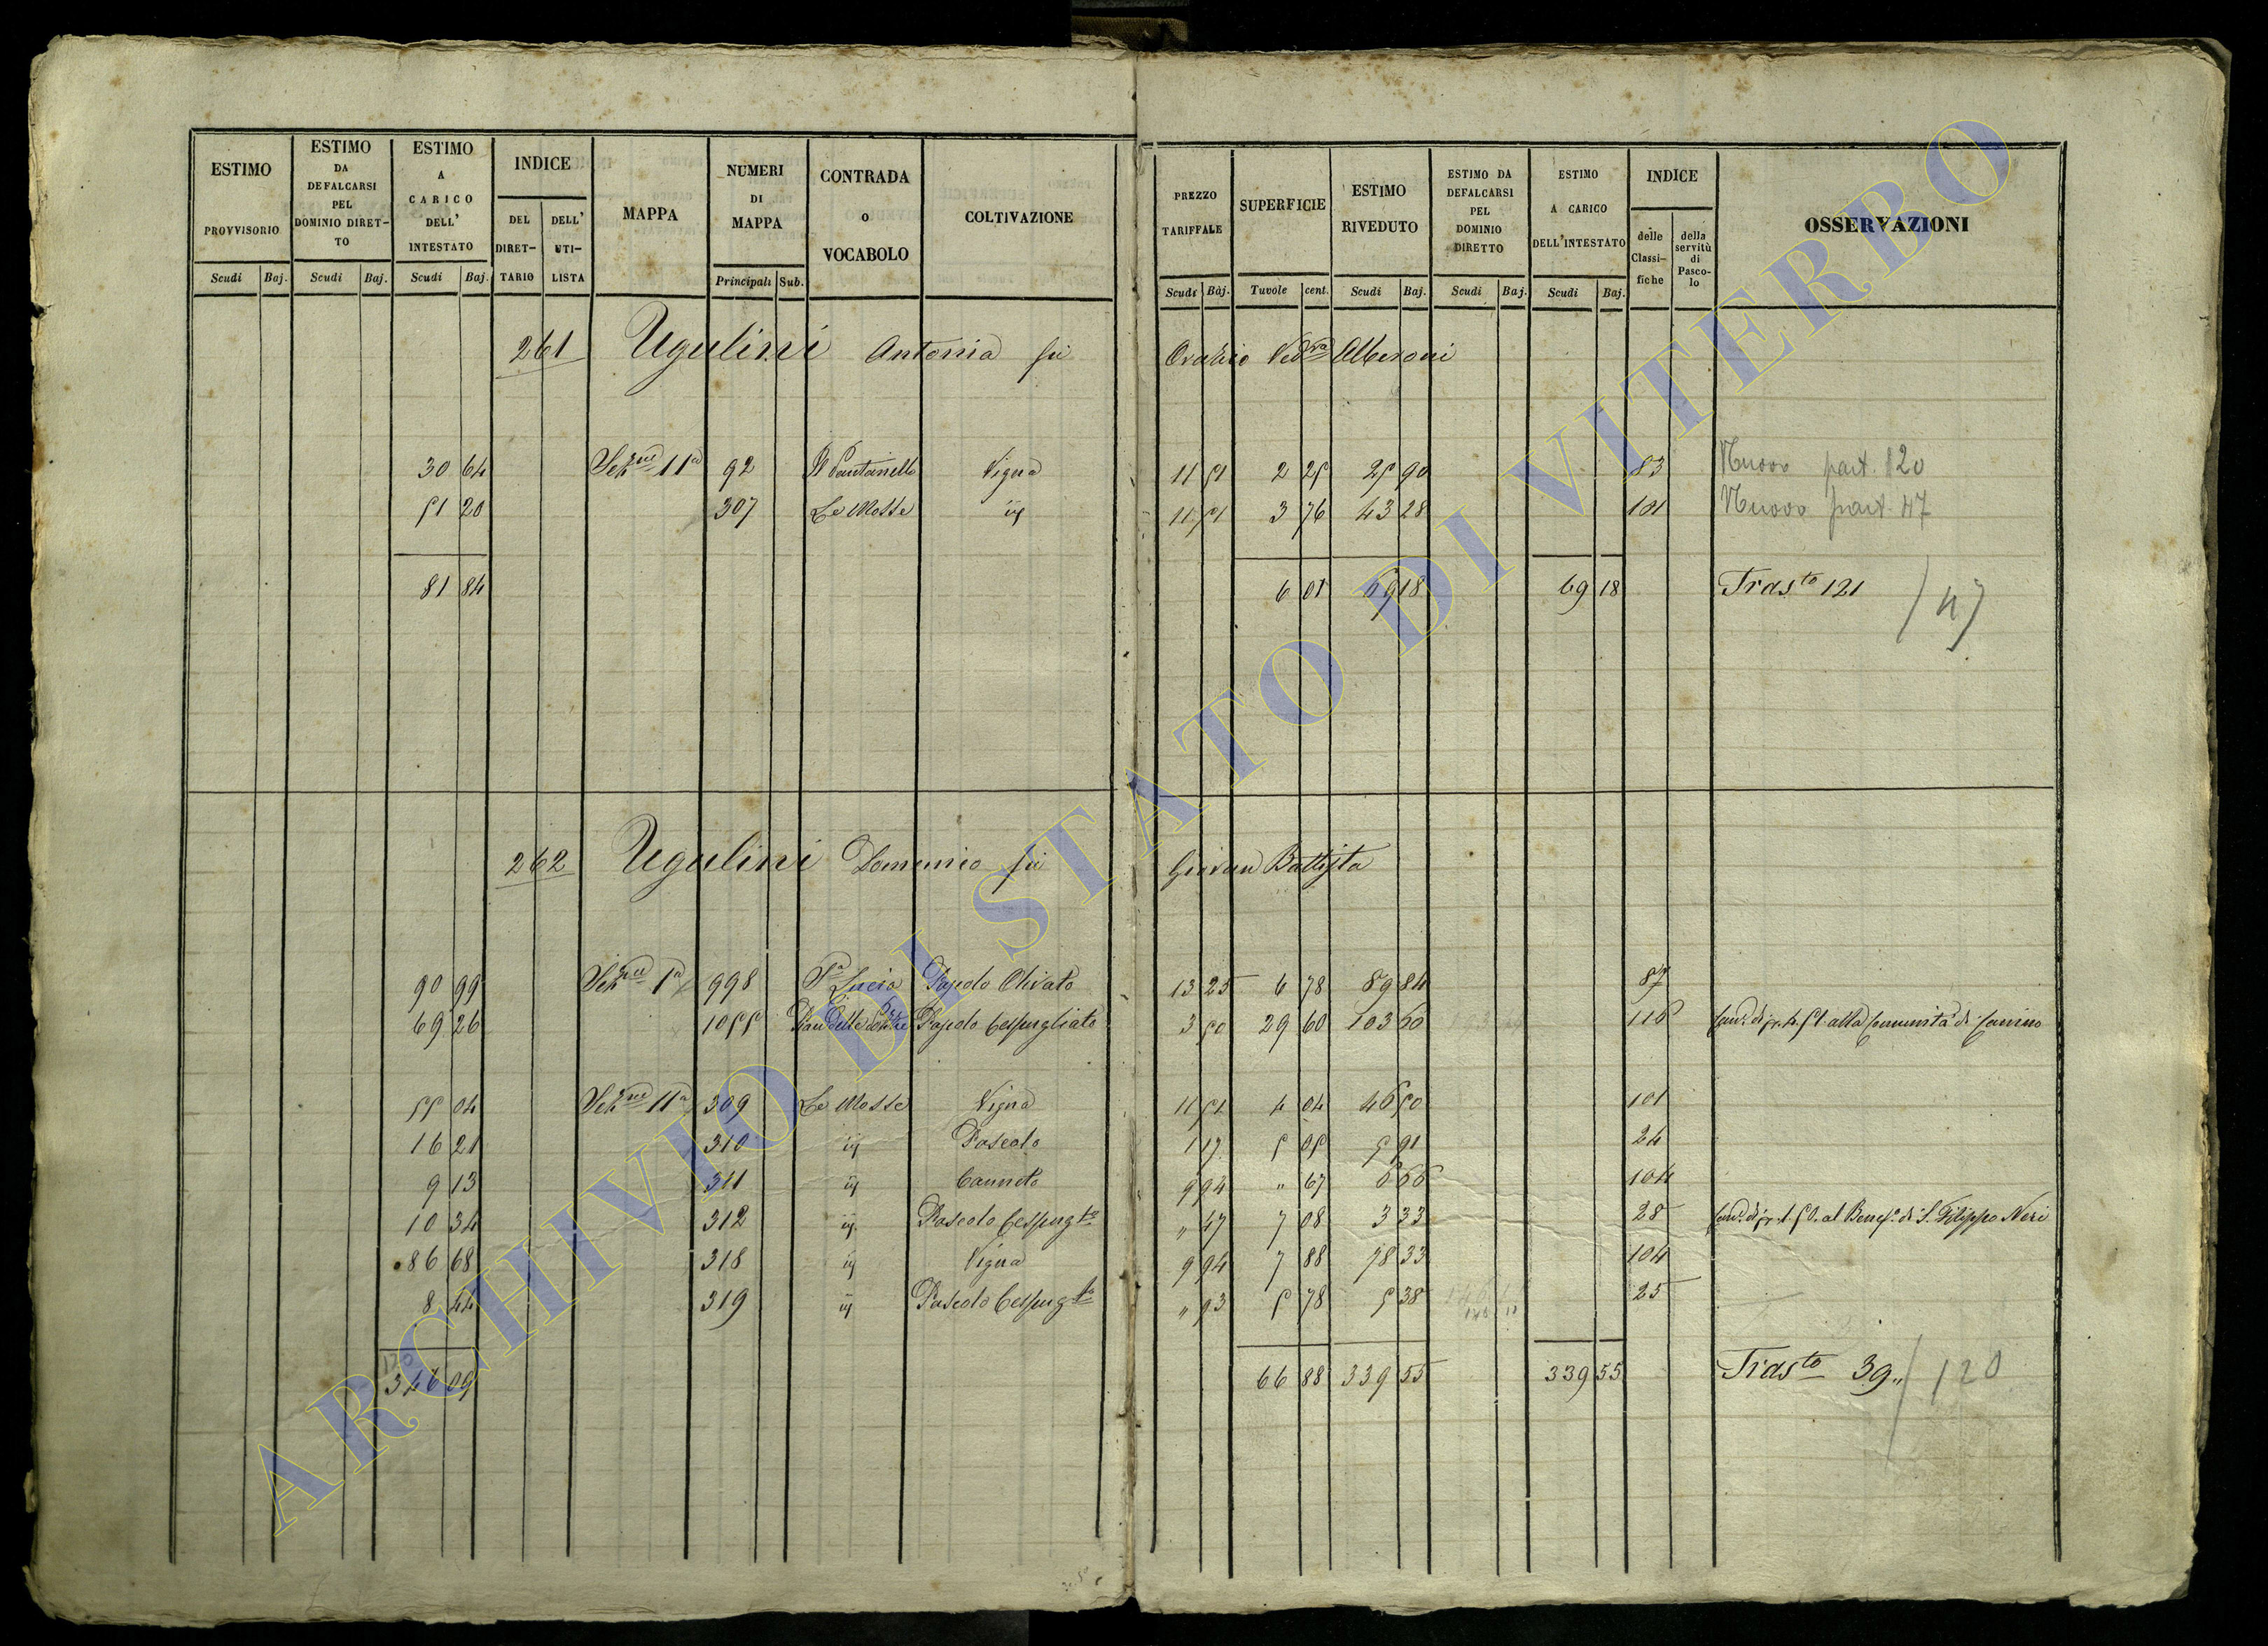 ESTIMO PROVVISORIO Scudi Baj.
ESTIMO DA DEFALCARSI PEL DOMINIO DIRET- TO Scudi Baj.
ESTIMO A CARICO DELL' INTESTATO Scudi Baj.
INDICE DEL DIRET- TARIO DELL' UTI- LISTA
MAPPA
NUMERI DI MAPPA Principali Sub.
CONTRADA O VOCABOLO
COLTIVAZIONE
PREZZO TARIFFALE Scudi Baj.
SUPERFICIE Tavole cent.
ESTIMO RIVEDUTO Scudi Baj.
ESTIMO DA DEFALCARSI PEL DOMINIO DIRETTO Scudi Baj.
ESTIMO A CARICO DELL'INTESTATO Scudi Baj.
INDICE delle Classi- fiche della servitù di Pasco- lo
OSSERVAZIONI
261 Ugulini Antonia fu Orazio Ved.va Alberoni
30 64 Sez.ne 11a 92 Il Pantanello Vigna 11 51 2 25 25 90 83 Nuovo part. 120
51 20 307 Le Mosse ij 11 51 3 76 43 28 101 Nuovo part. 47
81 84 6 01 69 18 69 18 Tras.to 121 / 47
262 Ugulini Domenico fu Giovan Battista
90 99 Sez.ne 1a 998 S.a Lucia Pascolo Olivato 13 25 6 78 89 84 87
69 26 1055 Pian delle Pascolo Cespugliato 3 50 29 60 103 60 116 alla Comunità di Canino
55 04 Sez.ne 11a 309 Le Mosse Vigna 11 51 4 04 46 50 101
16 21 310 ij Pascolo 1 17 5 05 5 91 24
9 13 311 ij Canneto 9 94 " 67 6 66 104
10 34 312 ij Pascolo Cespug.to " 47 7 08 3 33 28 al Benef.o di S. Filippo Neri
86 68 318 ij Vigna 9 94 7 88 78 33 104
8 44 319 ij Pascolo Cespug.to " 93 5 78 5 38 25
120
346 09 66 88 339 55 339 55 Tras.to 39 " / 120
ARCHIVIO DI STATO DI VITERBO